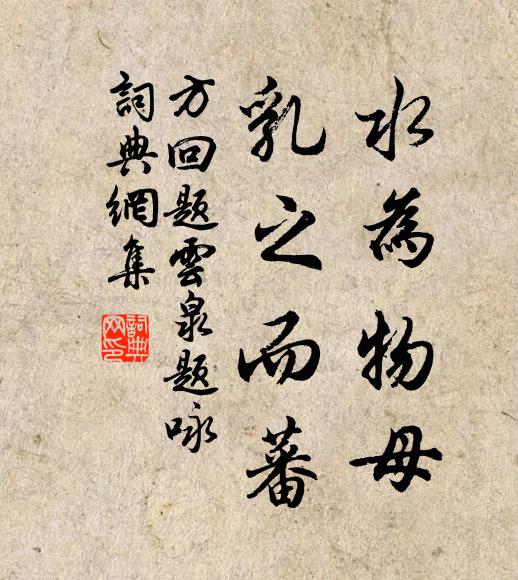 水為物母
乳之而蕃
方回題雲泉題咏
詞典網集
詞典
网印